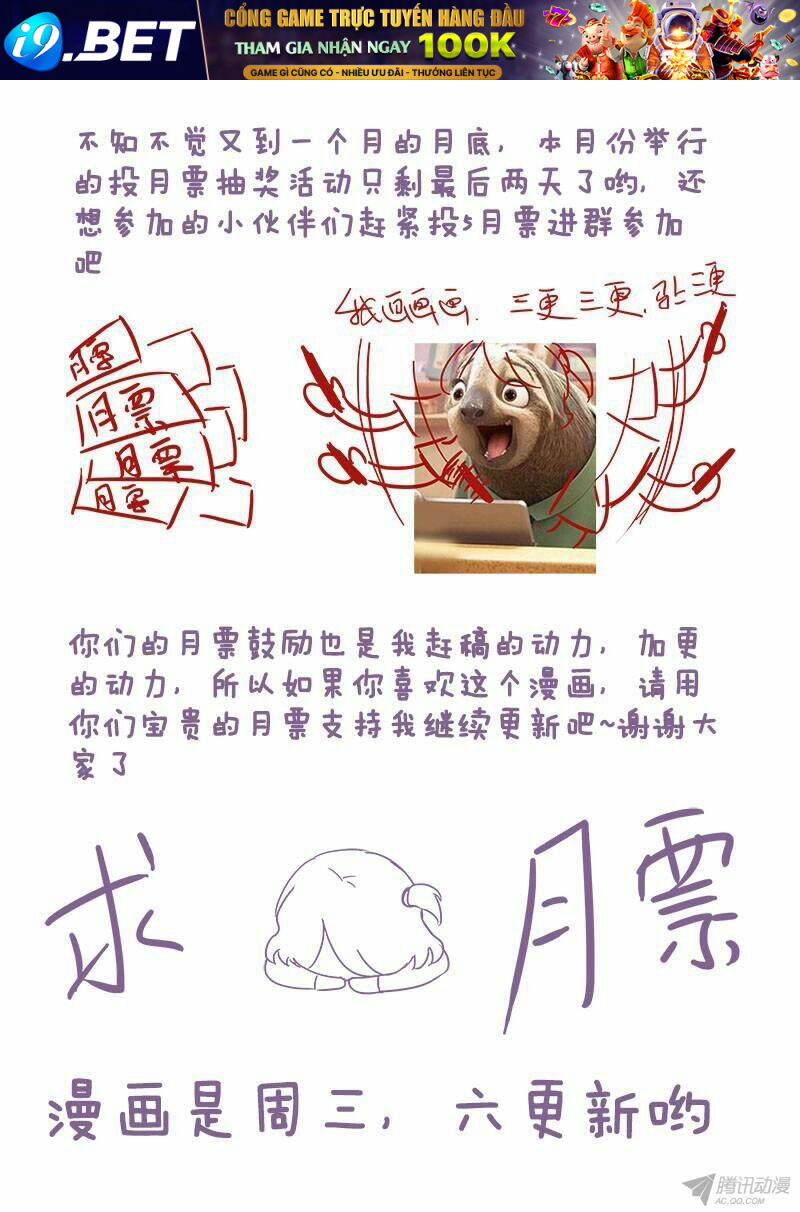 i9.BET
CỔNG GAME TRỰC TUYẾN HÀNG ĐẦU
THAM GIA NHẬN NGAY 100K
GAME GÌ CŨNG CÓ - NHIỀU ƯU ĐÃI - THƯỞNG LIÊN TỤC
不知不觉又到一个月的月底，本月份举行
的投月票抽奖活动只剩最后两天了哟，还
想参加的小伙伴们赶紧投5月票进群参加
吧
我画画画，三更三更，马上三更
月票
月票
月票
月票
你们的月票鼓励也是我赶稿的动力，加更
的动力，所以如果你喜欢这个漫画，请用
你们宝贵的月票支持我继续更新吧~谢谢大
家了
求 月票
漫画是周三，六更新哟
腾讯动漫
AC.QQ.COM